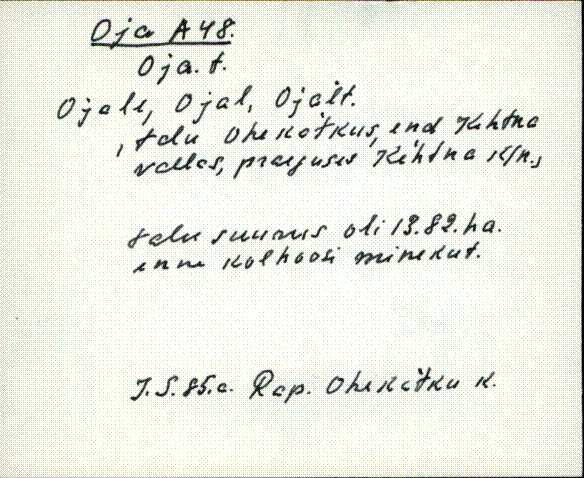 Oja A48.
Oja. t.
Ojale, Ojal, Ojalt.
, talu Ohekatkus, end Kehtna
vallas, praeguses Kehtna k/n.,
talu suurus oli 13.82. ha.
enne kolhoosi minekut.
J.S. 85. a. Rap. Ohekatku k.